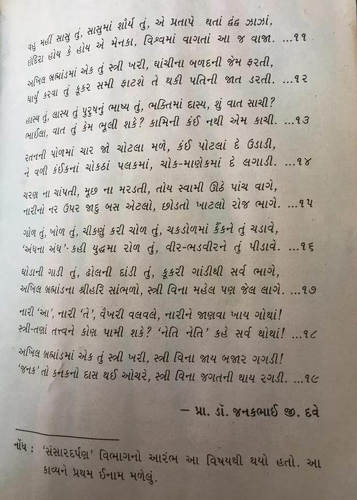 વધુ મહીં સાસુ તું, સાસુમાં શૌર્ય તું, એ પ્રતાપે થતાં દ્વંદ્વ ઝાઝાં,
ઇંદિરા હોય કે હોય એ મેનકા, વિશ્વમાં વાગતાં આ જ વાજા. ...૧૧
અખિલ બ્રહ્માંડમાં એક તું સ્ત્રી ખરી, ઘાંચીના બળદની જેમ ફરતી,
ધાર્યું કરવા તું કૂકર સમી ફાટશે તે થકી પતિની જાત ડરતી. ...૧૨
હાસ્ય તું, લાસ્ય તું પુરુષનું ભાષ્ય તું, ભક્તિમાં દાસ્ય, શું વાત સાચી?
ભાઈલા, વાત તું કેમ ભૂલી શકે? કામિની કંઈ નથી એમ કાચી. ...૧૩
રતનની પોળમાં ચાર જો ચોટલા મળે, કંઈ પોટલાં દે ઉડાડી,
ને વળી કંઈકનાં ચોકઠાં પલકમાં, ચોક-માણેકમાં દે લગાડી. ...૧૪
ચરણ ના ચાંપતી, મૂછ ના મરડતી, તોય સ્વામી ઊઠે પાંચ વાગે,
નારીનો નર ઉપર જાદુ બસ એટલો, છોડતો ખાટલો રોજ ભાગે. ...૧૫
ગોળ તું, ખોળ તું, ચીકણું કરી ચોળ તું, ચકડોળમાં કૈંકને તું ચડાવે,
'અંધના અંધ'-કહી યુદ્ધમાં રોળ તું, વીર-ભડવીરને તું પીડાવે. ...૧૬
ઘોડાની ગાડી તું, ઢોલની દાંડી તું, કૂકરી ગાંડીથી સર્વ ભાગે,
અખિલ બ્રહ્માંડના શ્રીહરિ સાંભળો, સ્ત્રી વિના મહેલ પણ જેલ લાગે. ...૧૭
નારી 'આ', નારી 'તે', વૈખરી વલવલે, નારીને જાણવા ખાય ગોથાં!
સ્ત્રી-તણાં તત્ત્વને કોણ પામી શકે? 'નેતિ નેતિ' કહે સર્વ થોથાં! ...૧૮
અખિલ બ્રહ્માંડમાં એક તું સ્ત્રી ખરી, સ્ત્રી વિના જાય બજાર ગગડી!
'જનક' તો કનકનો દાસ થઈ ઓચરે, સ્ત્રી વિના જગતની થાય રગડી. ...૧૯
– પ્રા. ડૉ. જનકભાઈ જી. દવે
નોંધ : 'સંસારદર્પણ' વિભાગનો આરંભ આ વિષયથી થયો હતો. આ
કાવ્યને પ્રથમ ઈનામ મળેલું.